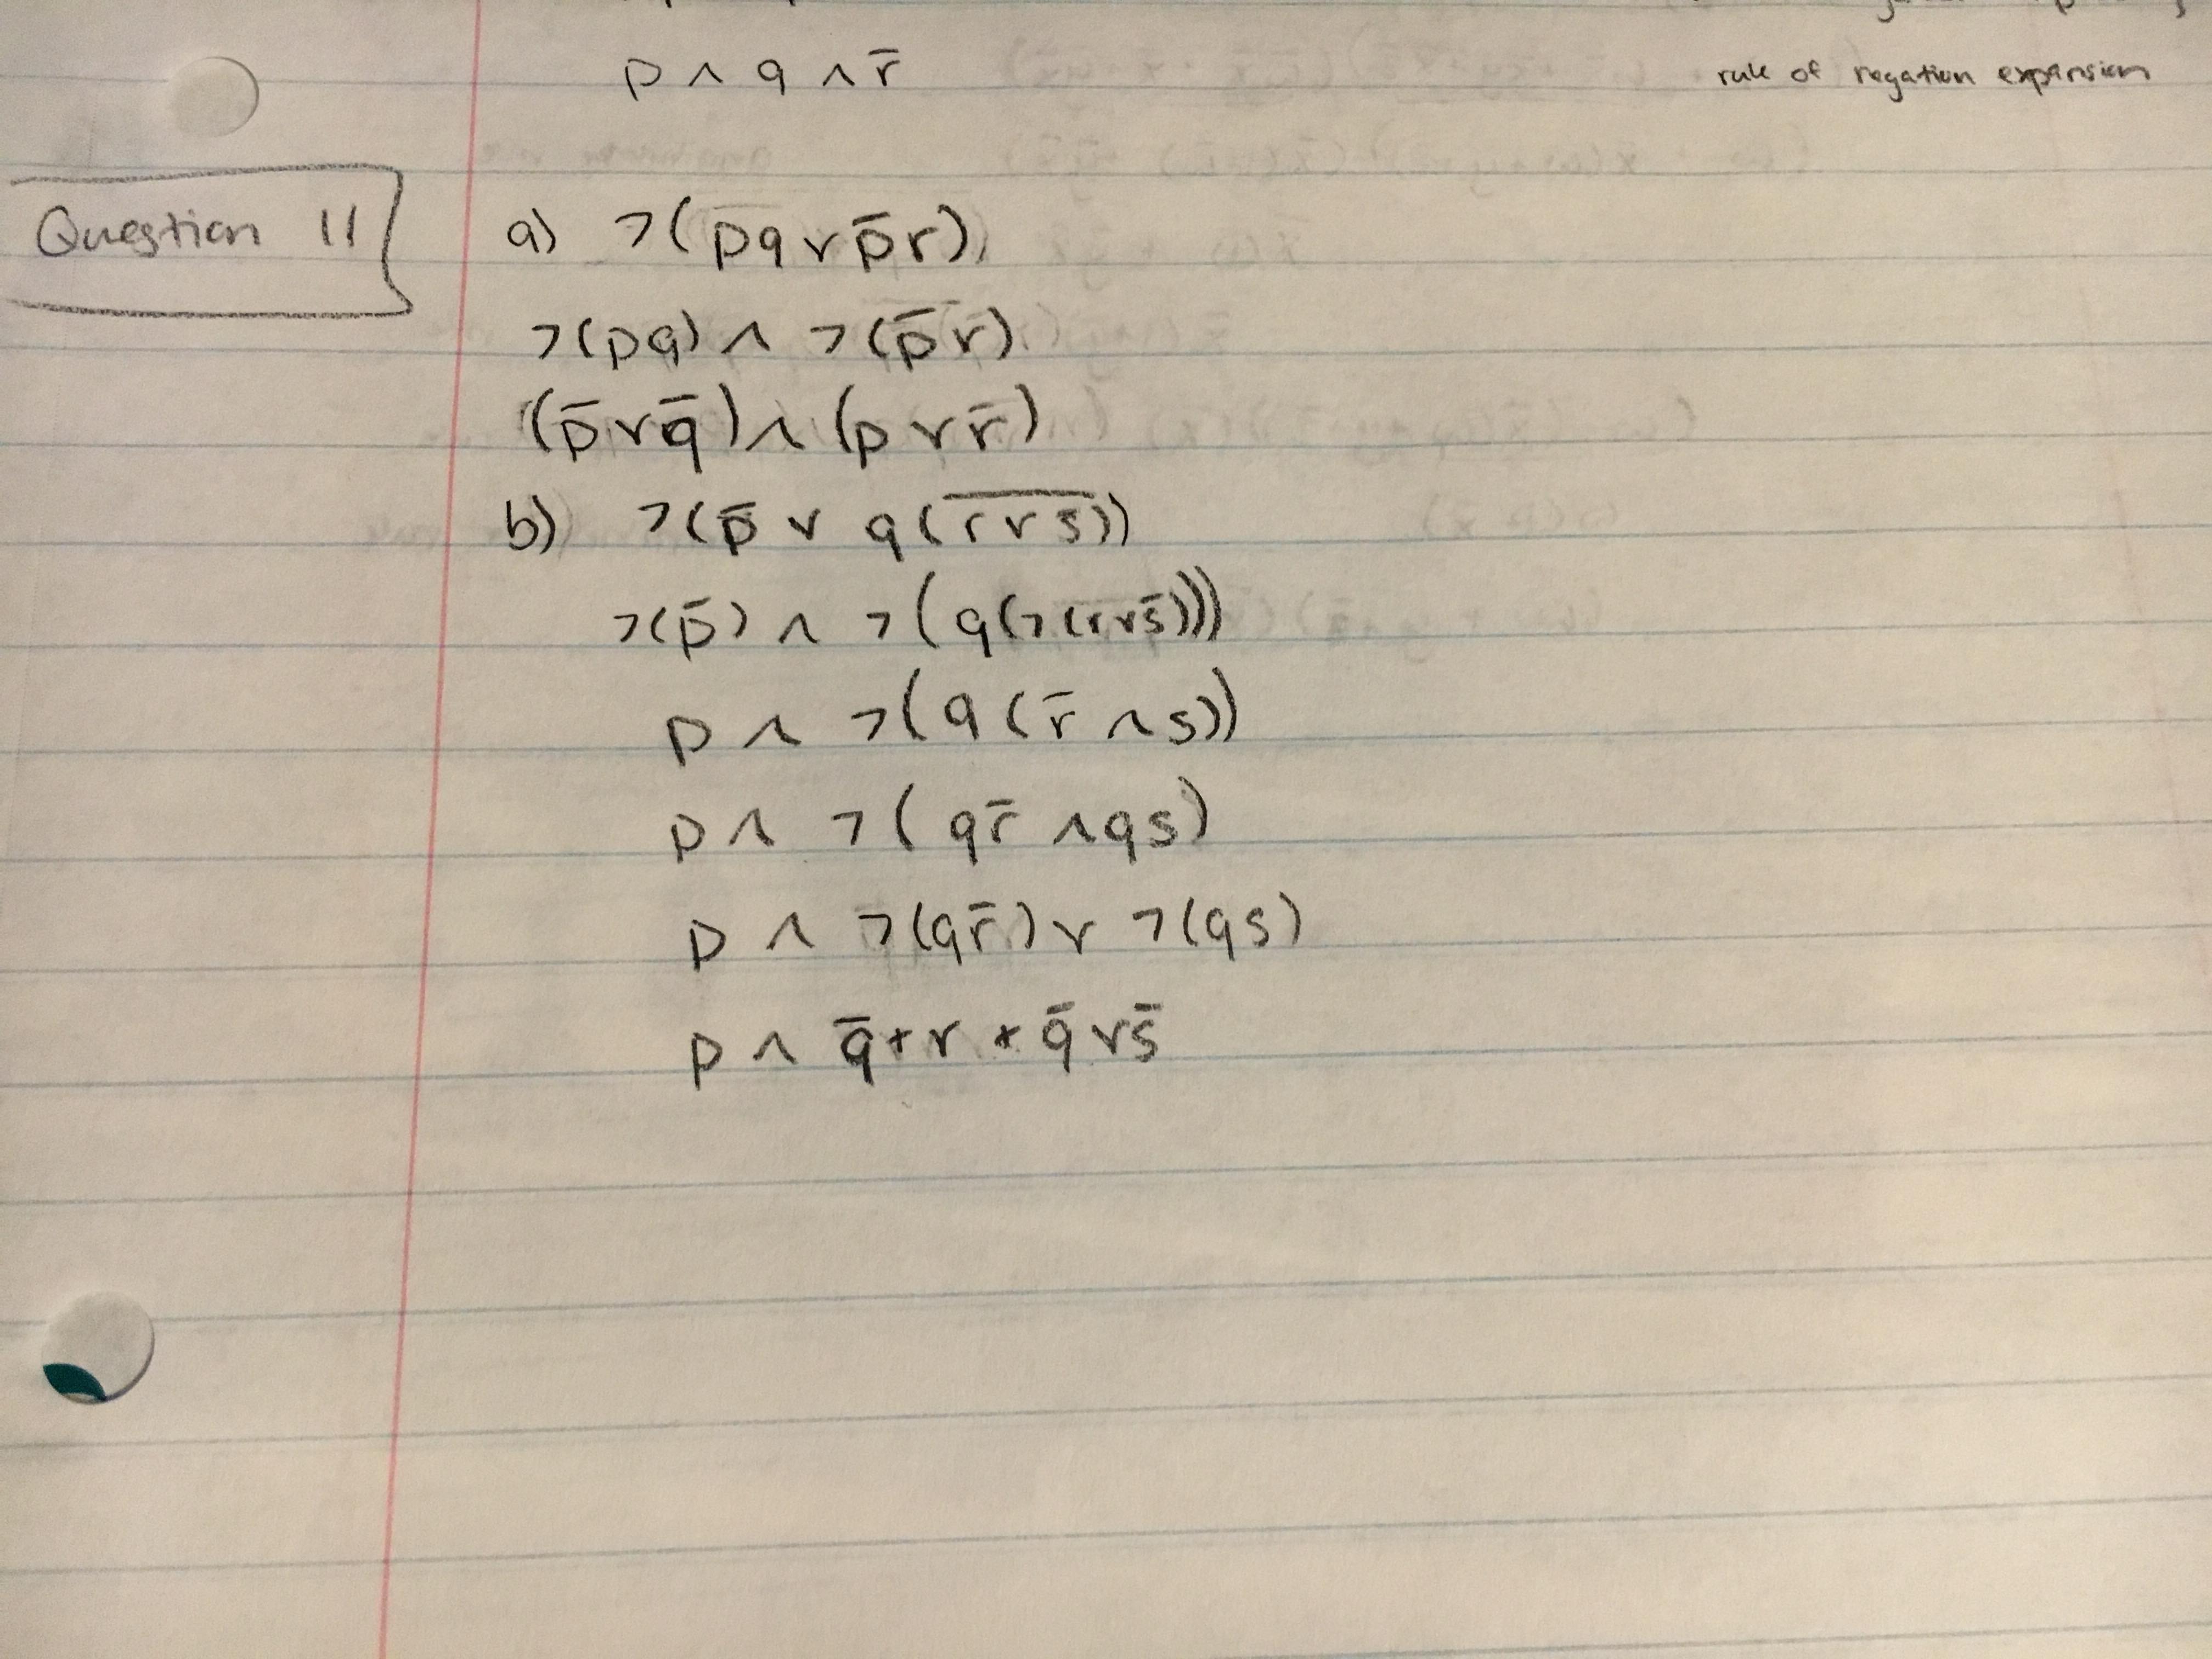 p ∧ q ∧ r̄
rule of negation expansion
Question 11
a) ¬(pq ∨ p̄r)
¬(pq) ∧ ¬(p̄r)
(p̄ ∨ q̄) ∧ (p ∨ r̄)
b) ¬(p̄ ∨ q(\overline{r ∨ s̄}))
¬(p̄) ∧ ¬(q(¬(r ∨ s̄)))
p ∧ ¬(q(r̄ ∧ s))
p ∧ ¬(qr̄ ∧ qs)
p ∧ ¬(qr̄) ∨ ¬(qs)
p ∧ q̄ + r + q̄ ∨ s̄